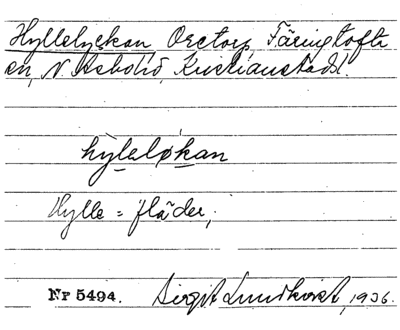 Hyllelyckan, Oretorp, Färingtofta
sn, N. Åsbo hd, Kristianstads l.
hýleløkan
Hylle = fläder,
Nr 5494. Birgit Lundkvist, 1936.